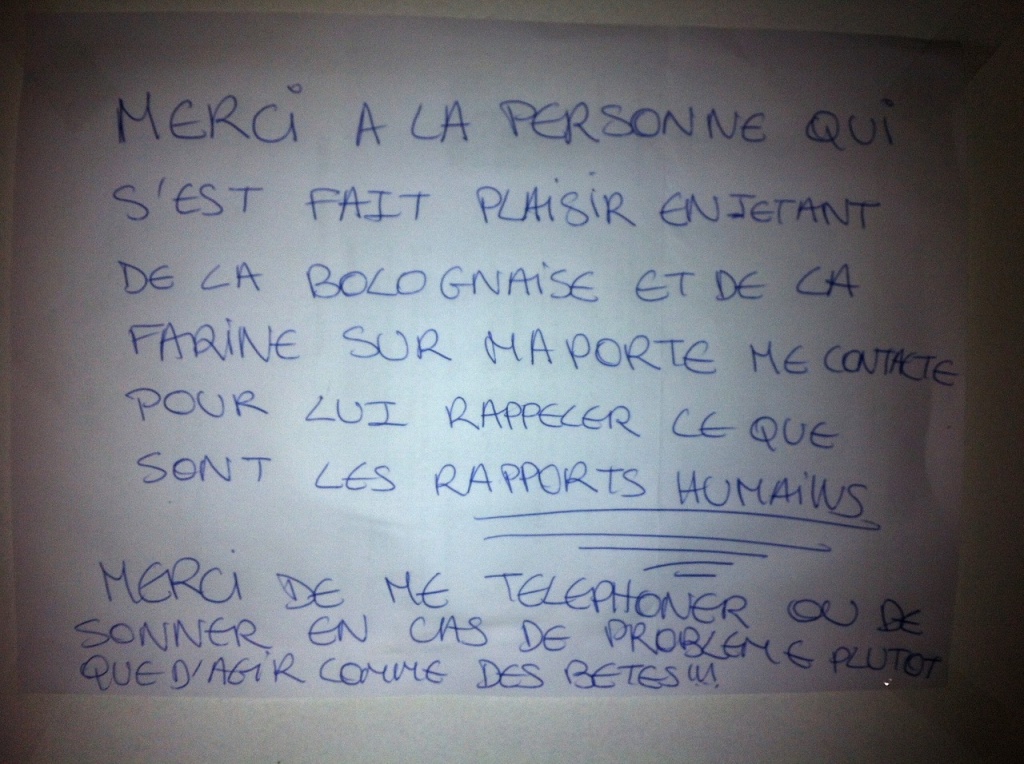 MERCi A LA PERSONNE QUi
S'EST FAIT PLAiSiR EN JETANT
DE LA BOLOGNAiSE ET DE LA
FARiNE SUR MA PORTE ME CONTACTE
POUR LUI RAPPELER CE QUE
SONT LES RAPPORTS HUMAiNS
MERCi DE ME TELEPHONER OU DE
SONNER EN CAS DE PROBLEME PLUTOT
QUE D'AGiR COMME DES BETES!!!